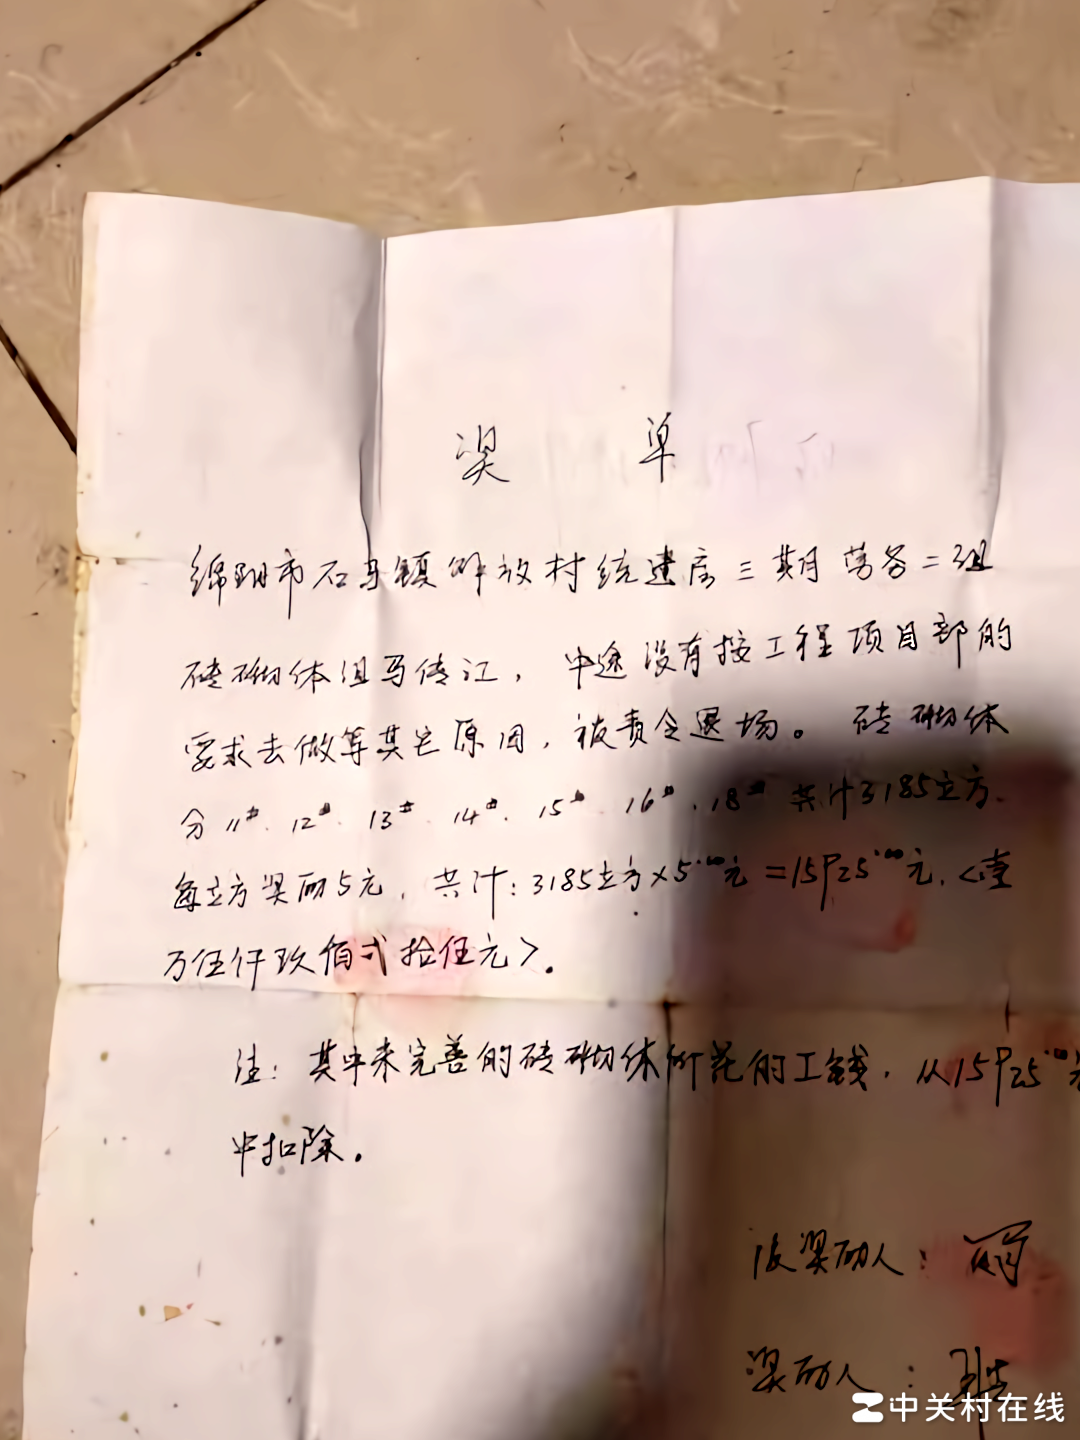 奖 单
绵阳市石马镇解放村统建房三期劳务二组
砖砌体组马传江，中途没有按工程项目部的
要求去做等其它原因，被责令退场。砖砌体
分11#、12#、13#、14#、15#、16#、18#共计3185立方、
每立方奖励5元，共计：3185立方×5.00元=15925.00元，<壹
万伍仟玖佰弍拾伍元>。
注：其中未完善的砖砌体所花的工钱，从15925.00元
中扣除。
被奖励人：
奖励人：
中关村在线